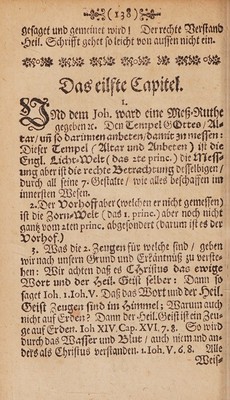 ( 138 )
gesaget und gemeinet wird! Der rechte Verstand
Heil. Schrifft gehet so leicht von aussen nicht ein.
Das eilfte Capitel.
1.
UNd dem Joh. ward eine Meß-Ruthe
gegeben ꝛc. Den Tempel GOttes / Al-
tar / uñ so darinnen anbeten / damit zu messen:
Dieser Tempel (Altar und Anbeten) ist die
Engl. Licht-Welt (das 2te princ.) die Mess-
ung aber ist die rechte Betrachtung desselbigen /
durch all seine 7. Gestalte / wie alles beschaffen im
innersten Wesen.
2. Der Vorhoff aber (welchen er nicht gemessen)
ist die Zorn-Welt (das 1. princ.) aber noch nicht
gantz vom 2ten princ. abgesondert (darum ist es der
Vorhof.)
3. Was die 2. Zeugen für welche sind / gehen
wir nach unsern Grund und Erkäntnüß zu verste-
hen: Wir achten daß es Christus das ewige
Wort und der Heil. Geist selber: Dann so
saget Joh. 1. Joh. V. Daß das Wort und der Heil.
Geist Zeugen sind im Himmel; Warum auch
nicht auf Erden? Dann der Heil. Geist ist ein Zeu-
ge auf Erden. Joh XIV. Cap. XVI. 7. 8. So wird
durch das Wasser und Blut / auch niemand an-
ders als Christus verstanden. 1. Joh. V. 6. 8. Alle
Weis-